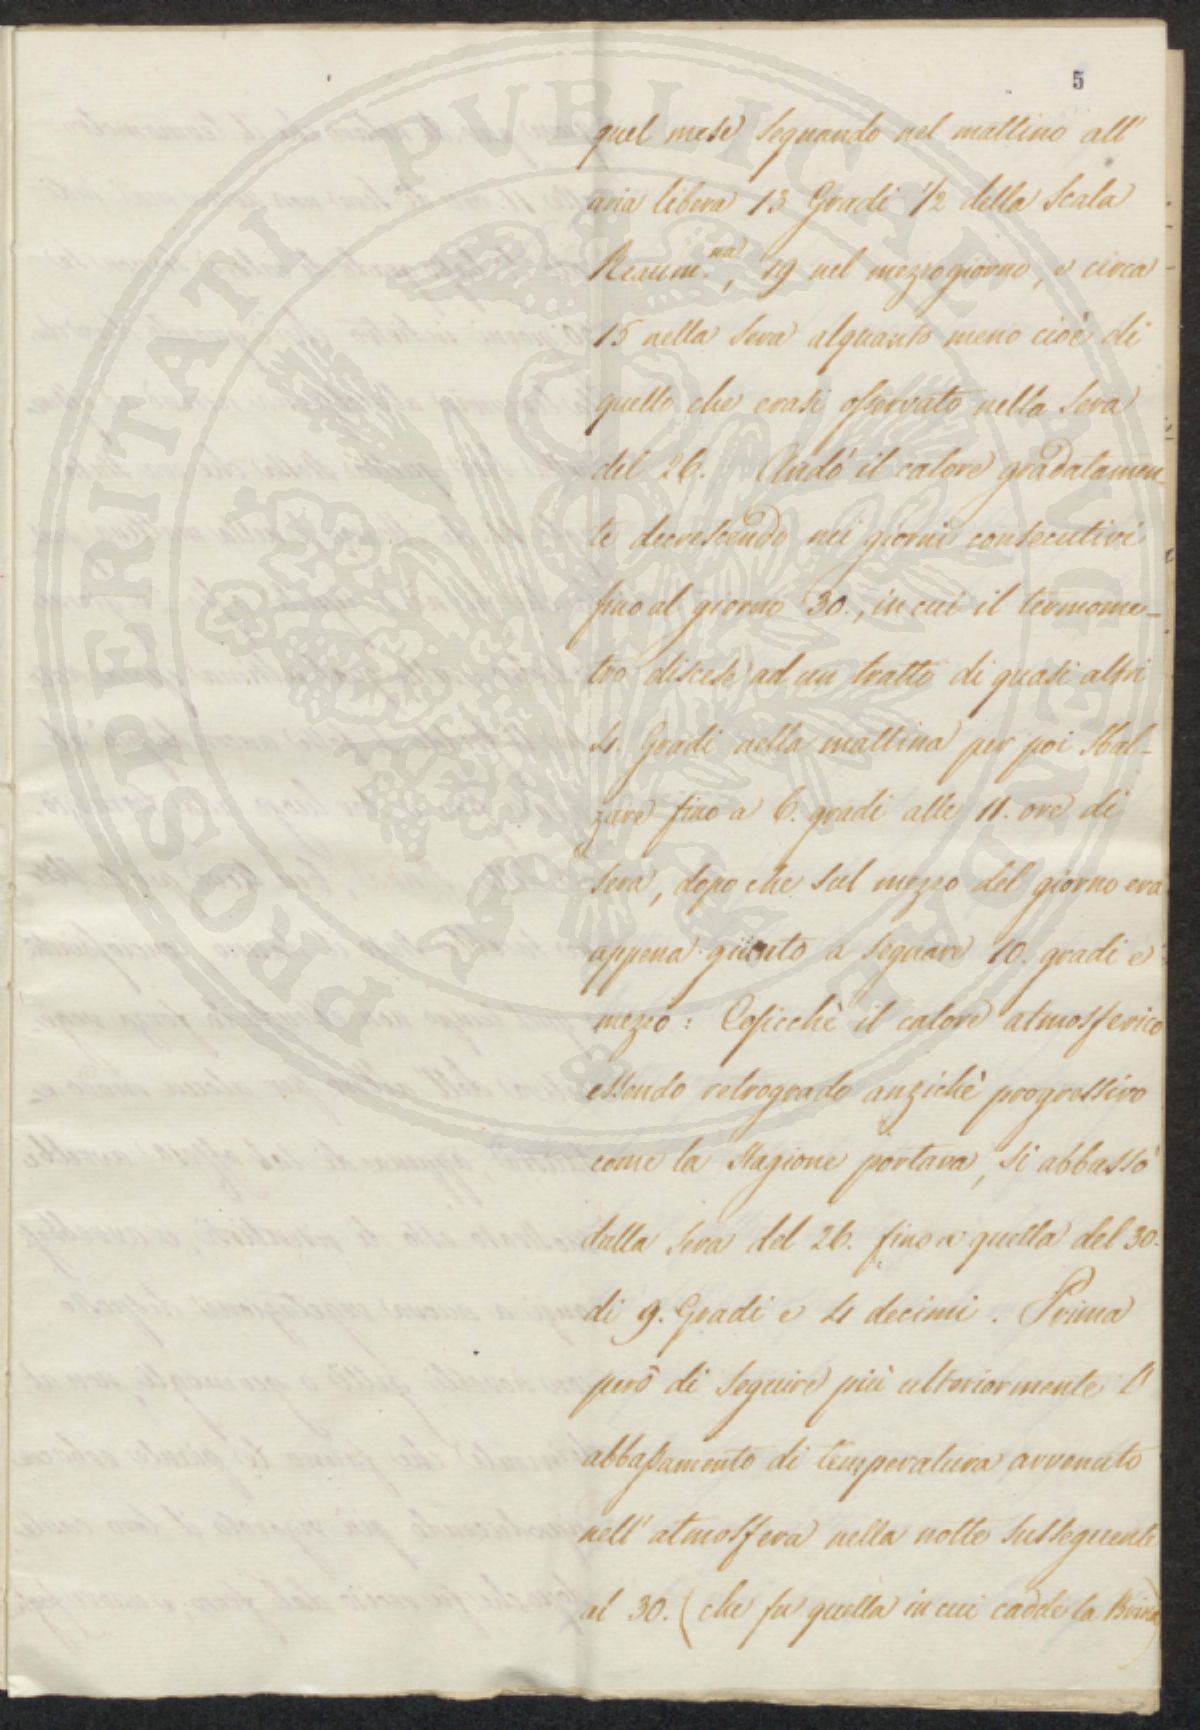 5
PROSPERITATI PUBLICAE AUGENDAE
quel mese segnando nel mattino all'
aria libera 13 Gradi 1/2 della Scala
Reaum.na, 19 nel mezzogiorno, e circa
15 nella sera alquanto meno cioè di
quello che erasi osservato nella sera
del 26. Andò il calore gradatamen-
te decrescendo nei giorni consecutivi
fino al giorno 30., in cui il termome-
tro discese ad un tratto di quasi altri
4. Gradi nella mattina per poi sbal-
zare fino a 6. gradi alle 11. ore di
sera, dopo che sul mezzo del giorno era
appena giunto a segnare 10. gradi e
mezzo: Cosicchè il calore atmosferico
essendo retrogrado anzichè progressivo
come la stagione portava, si abbassò
dalla sera del 26. fino a quella del 30.
di 9. Gradi e 4 decimi. Prima
però di seguire più ulteriormente l'
abbassamento di temperatura avvenuto
nell'atmosfera nella notte susseguente
al 30. (che fu quella in cui cadde la Brina)